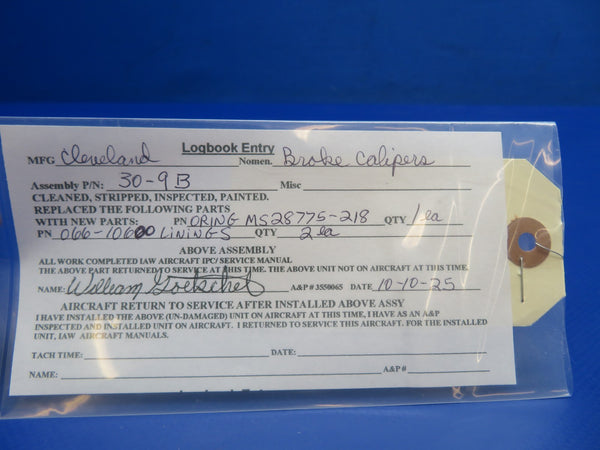 Logbook Entry
MFG Cleveland Nomen. Brake Calipers
Assembly P/N: 30-9B Misc
CLEANED, STRIPPED, INSPECTED, PAINTED.
REPLACED THE FOLLOWING PARTS
WITH NEW PARTS: PN ORING MS28775-218 QTY 1 ea
PN 066-10600 LiNiNGS QTY 2 ea
ABOVE ASSEMBLY
ALL WORK COMPLETED IAW AIRCRAFT IPC/ SERVICE MANUAL
THE ABOVE PART RETURNED TO SERVICE AT THIS TIME. THE ABOVE UNIT NOT ON AIRCRAFT AT THIS TIME.
NAME: William A&P # 3550065 DATE 10-10-25
AIRCRAFT RETURN TO SERVICE AFTER INSTALLED ABOVE ASSY
I HAVE INSTALLED THE ABOVE (UN-DAMAGED) UNIT ON AIRCRAFT AT THIS TIME, I HAVE AS AN A&P
INSPECTED AND INSTALLED UNIT ON AIRCRAFT. I RETURNED TO SERVICE THIS AIRCRAFT. FOR THE INSTALLED
UNIT, IAW AIRCRAFT MANUALS.
TACH TIME: DATE:
NAME: A&P #